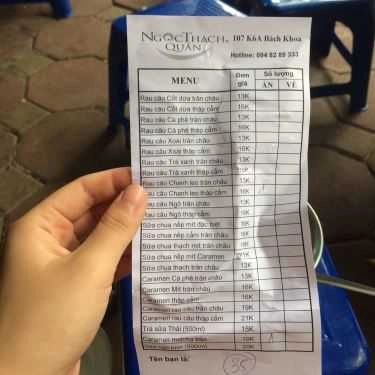 NGỌCTHẠCH QUÁN 107 K6A Bách Khoa
Hotline: 094 82 89 333
MENU Đơn giá Số lượng
ĂN VỀ
Rau câu Cốt dừa trân châu 13K
Rau câu Cốt dừa thập cẩm 16K
Rau câu Cà phê trân châu 13K
Rau câu Cà phê thập cẩm 16K
Rau câu Xoài trân châu 13K
Rau câu Xoài thập cẩm 16K
Rau câu Trà xanh trân châu 13K
Rau câu Trà xanh thập cẩm
Rau câu Chanh leo trân châu 13K
Rau câu Chanh leo thập cẩm 16K
Rau câu Ngô trân châu
Rau câu Ngô thập cẩm 16K
Sữa chua nếp mít đặc biệt
Sữa chua nếp cẩm trân châu
Sữa chua thạch mít trân châu
Sữa chua nếp mít Caramen 21K
Sữa chua thạch trân châu 13K
Caramen Cà phê trân châu 13K
Caramen Mít trân châu 16K
Caramen thập cẩm 16K
Caramen rau câu trân châu 16K
Caramen rau câu thập cẩm 21K
Trà sữa Thái (500ml) 15K
Caramen matcha
(500ml)
Tên bạn là: 35